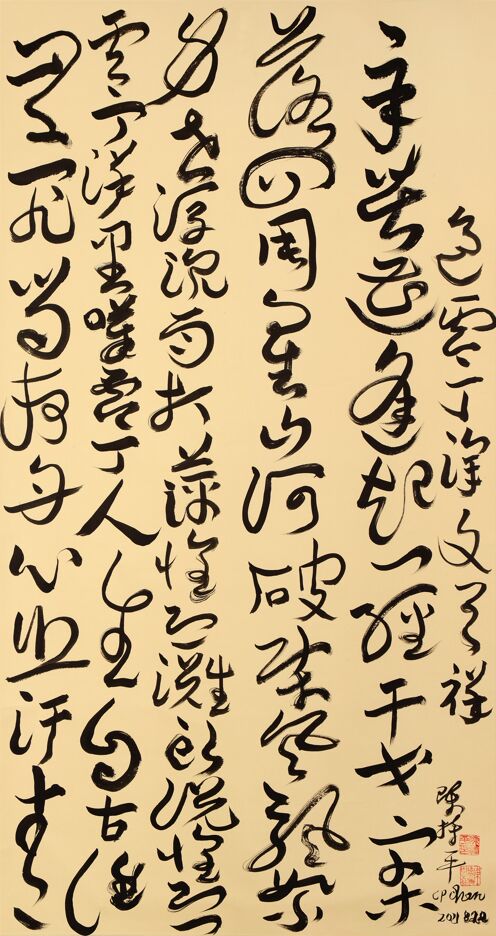 過零丁洋文天祥
辛苦遭逢起一經干戈寥
落四周星山河破碎風飄絮
身世浮沉雨打萍惶恐灘頭說惶恐
零丁洋里嘆零丁人生自古誰
無死留取丹心照汗青
陳平
CP Chen